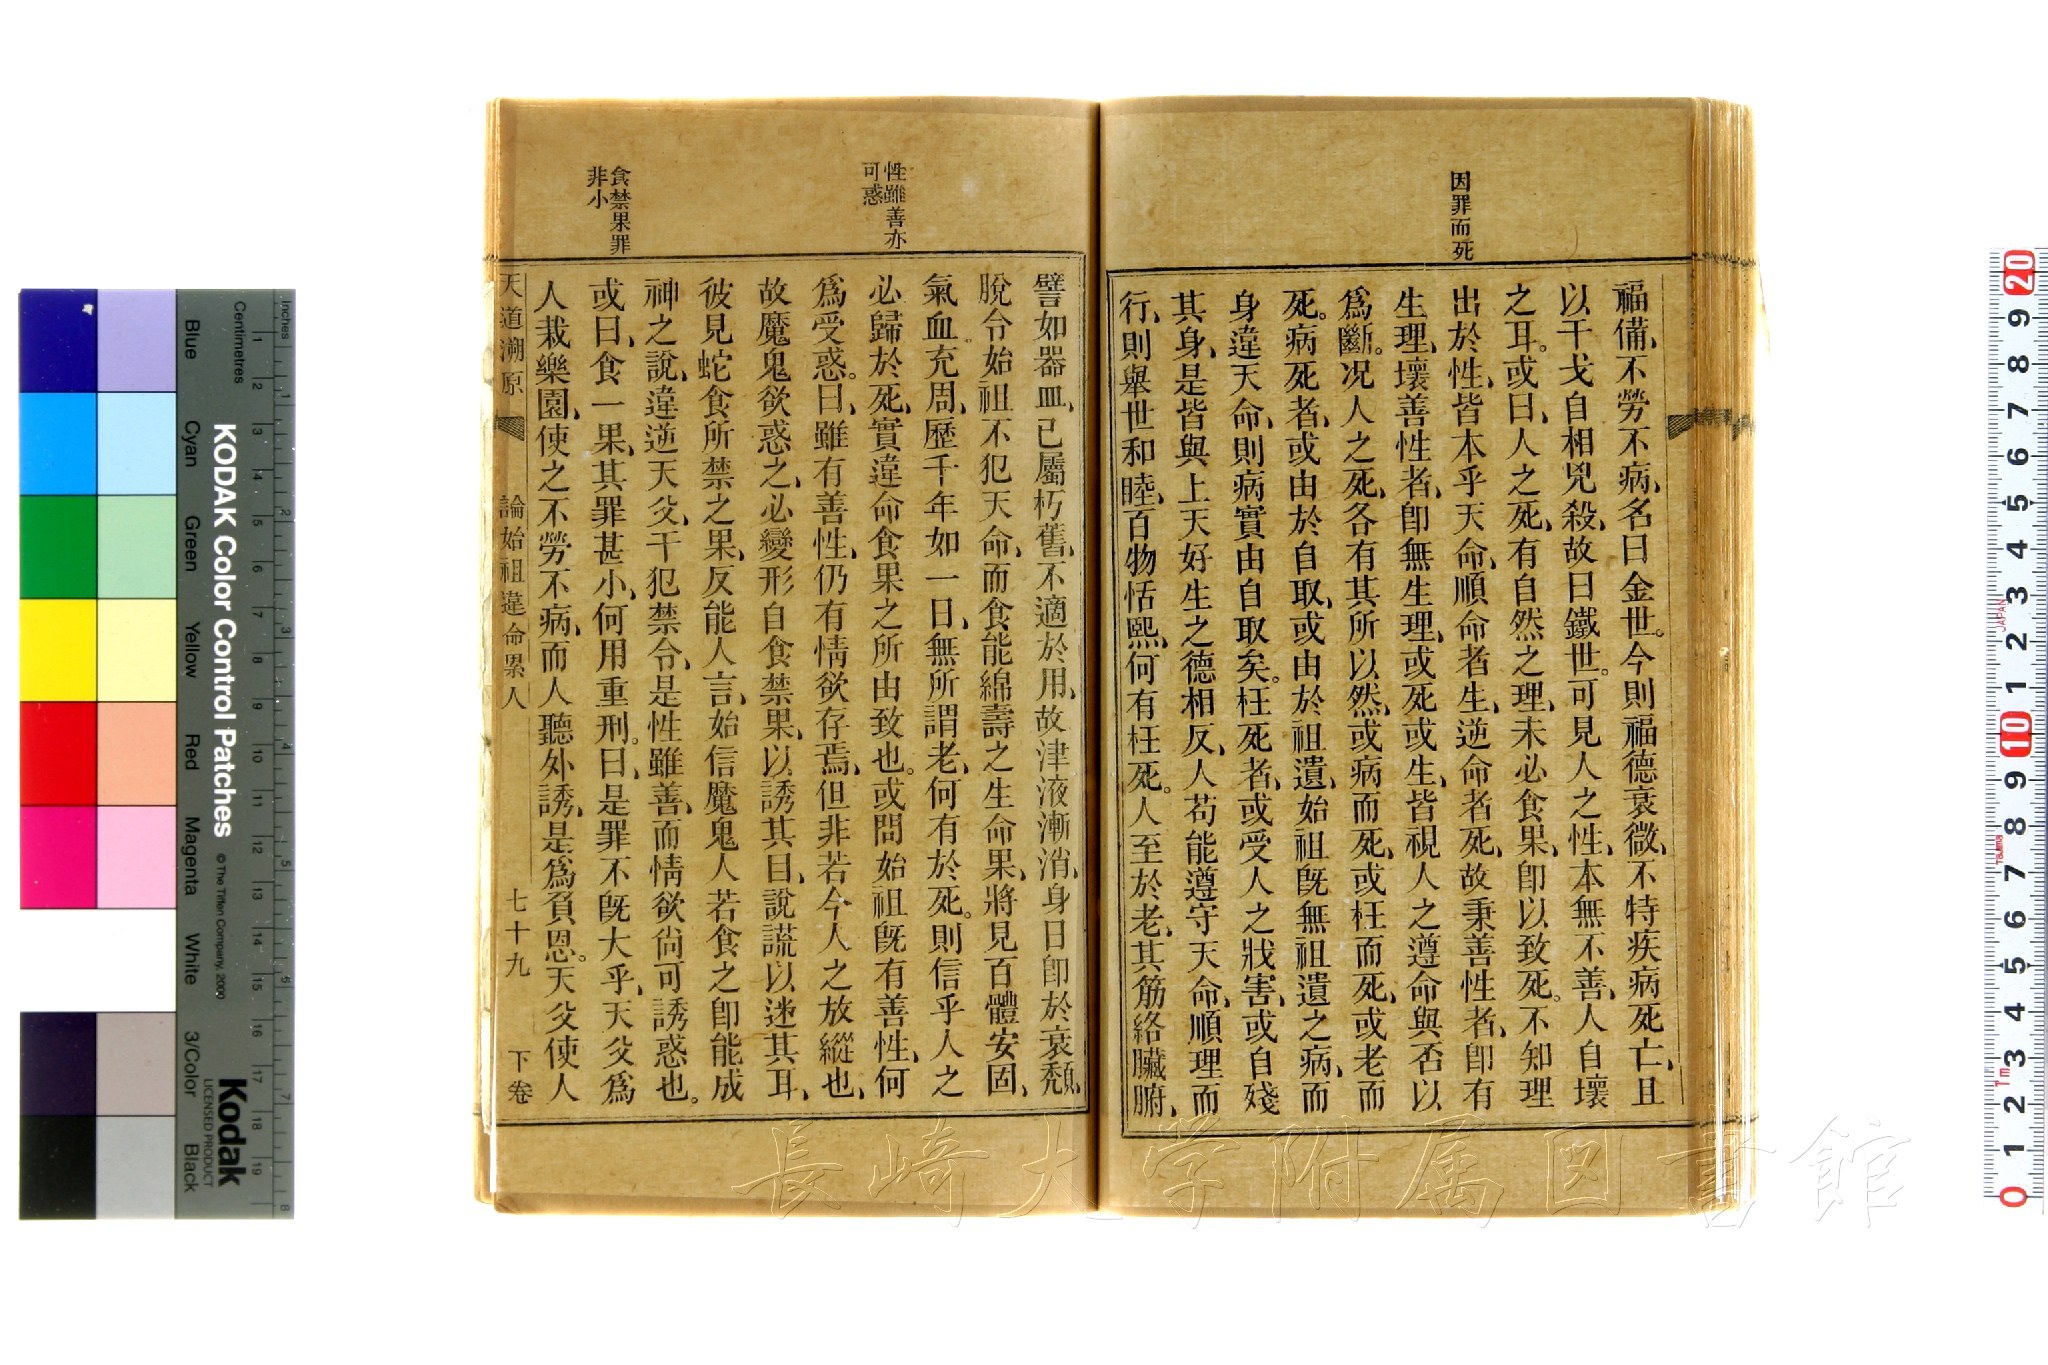 因罪而死
福備、不勞不病、名曰金世。今則福德衰微、不特疾病死亡、且
以干戈自相兇殺、故曰鐵世。可見人之性、本無不善、人自壞
之耳。或曰、人之死、有自然之理、未必食果、卽以致死。不知理
出於性、皆本乎天命、順命者生、逆命者死、故秉善性者、卽有
生理、壞善性者、卽無生理、或死或生、皆視人之遵命與否以
爲斷。况人之死、各有其所以然、或病而死、或枉而死、或老而
死。病死者、或由於自取、或由於祖遺、始祖旣無祖遺之病、而
身違天命、則病實由自取矣。枉死者、或受人之戕害、或自殘
其身、是皆與上天好生之德相反、人苟能遵守天命、順理而
行、則舉世和睦、百物恬熙、何有枉死。人至於老、其筋絡臟腑、
性雖善亦
可惑
食禁果罪
非小
譬如器皿、已屬朽舊、不適於用、故津液漸消、身日卽於衰頹、
脫令始祖不犯天命、而食能綿壽之生命果、將見百體安固、
氣血充周、歷千年如一日、無所謂老、何有於死。則信乎人之
必歸於死、實違命食果之所由致也。或問始祖旣有善性、何
爲受惑。曰、雖有善性、仍有情欲存焉、但非若今人之放縱也、
故魔鬼欲惑之、必變形自食禁果、以誘其目、說謊以迷其耳、
彼見蛇食所禁之果、反能人言、始信魔鬼人若食之卽能成
神之說、違逆天父、干犯禁令、是性雖善、而情欲尙可誘惑也。
或曰、食一果、其罪甚小、何用重刑。曰、是罪不旣大乎、天父爲
人栽樂園、使之不勞不病、而人聽外誘、是爲負恩。天父使人
天道溯原
論始祖違命累人
七十九
下卷
KODAK Color Control Patches
© The Tiffen Company, 2000
Kodak
LICENSED PRODUCT
Inches
Centimetres
Blue
Cyan
Green
Yellow
Red
Magenta
White
3/Color
Black
長崎大学附属図書館